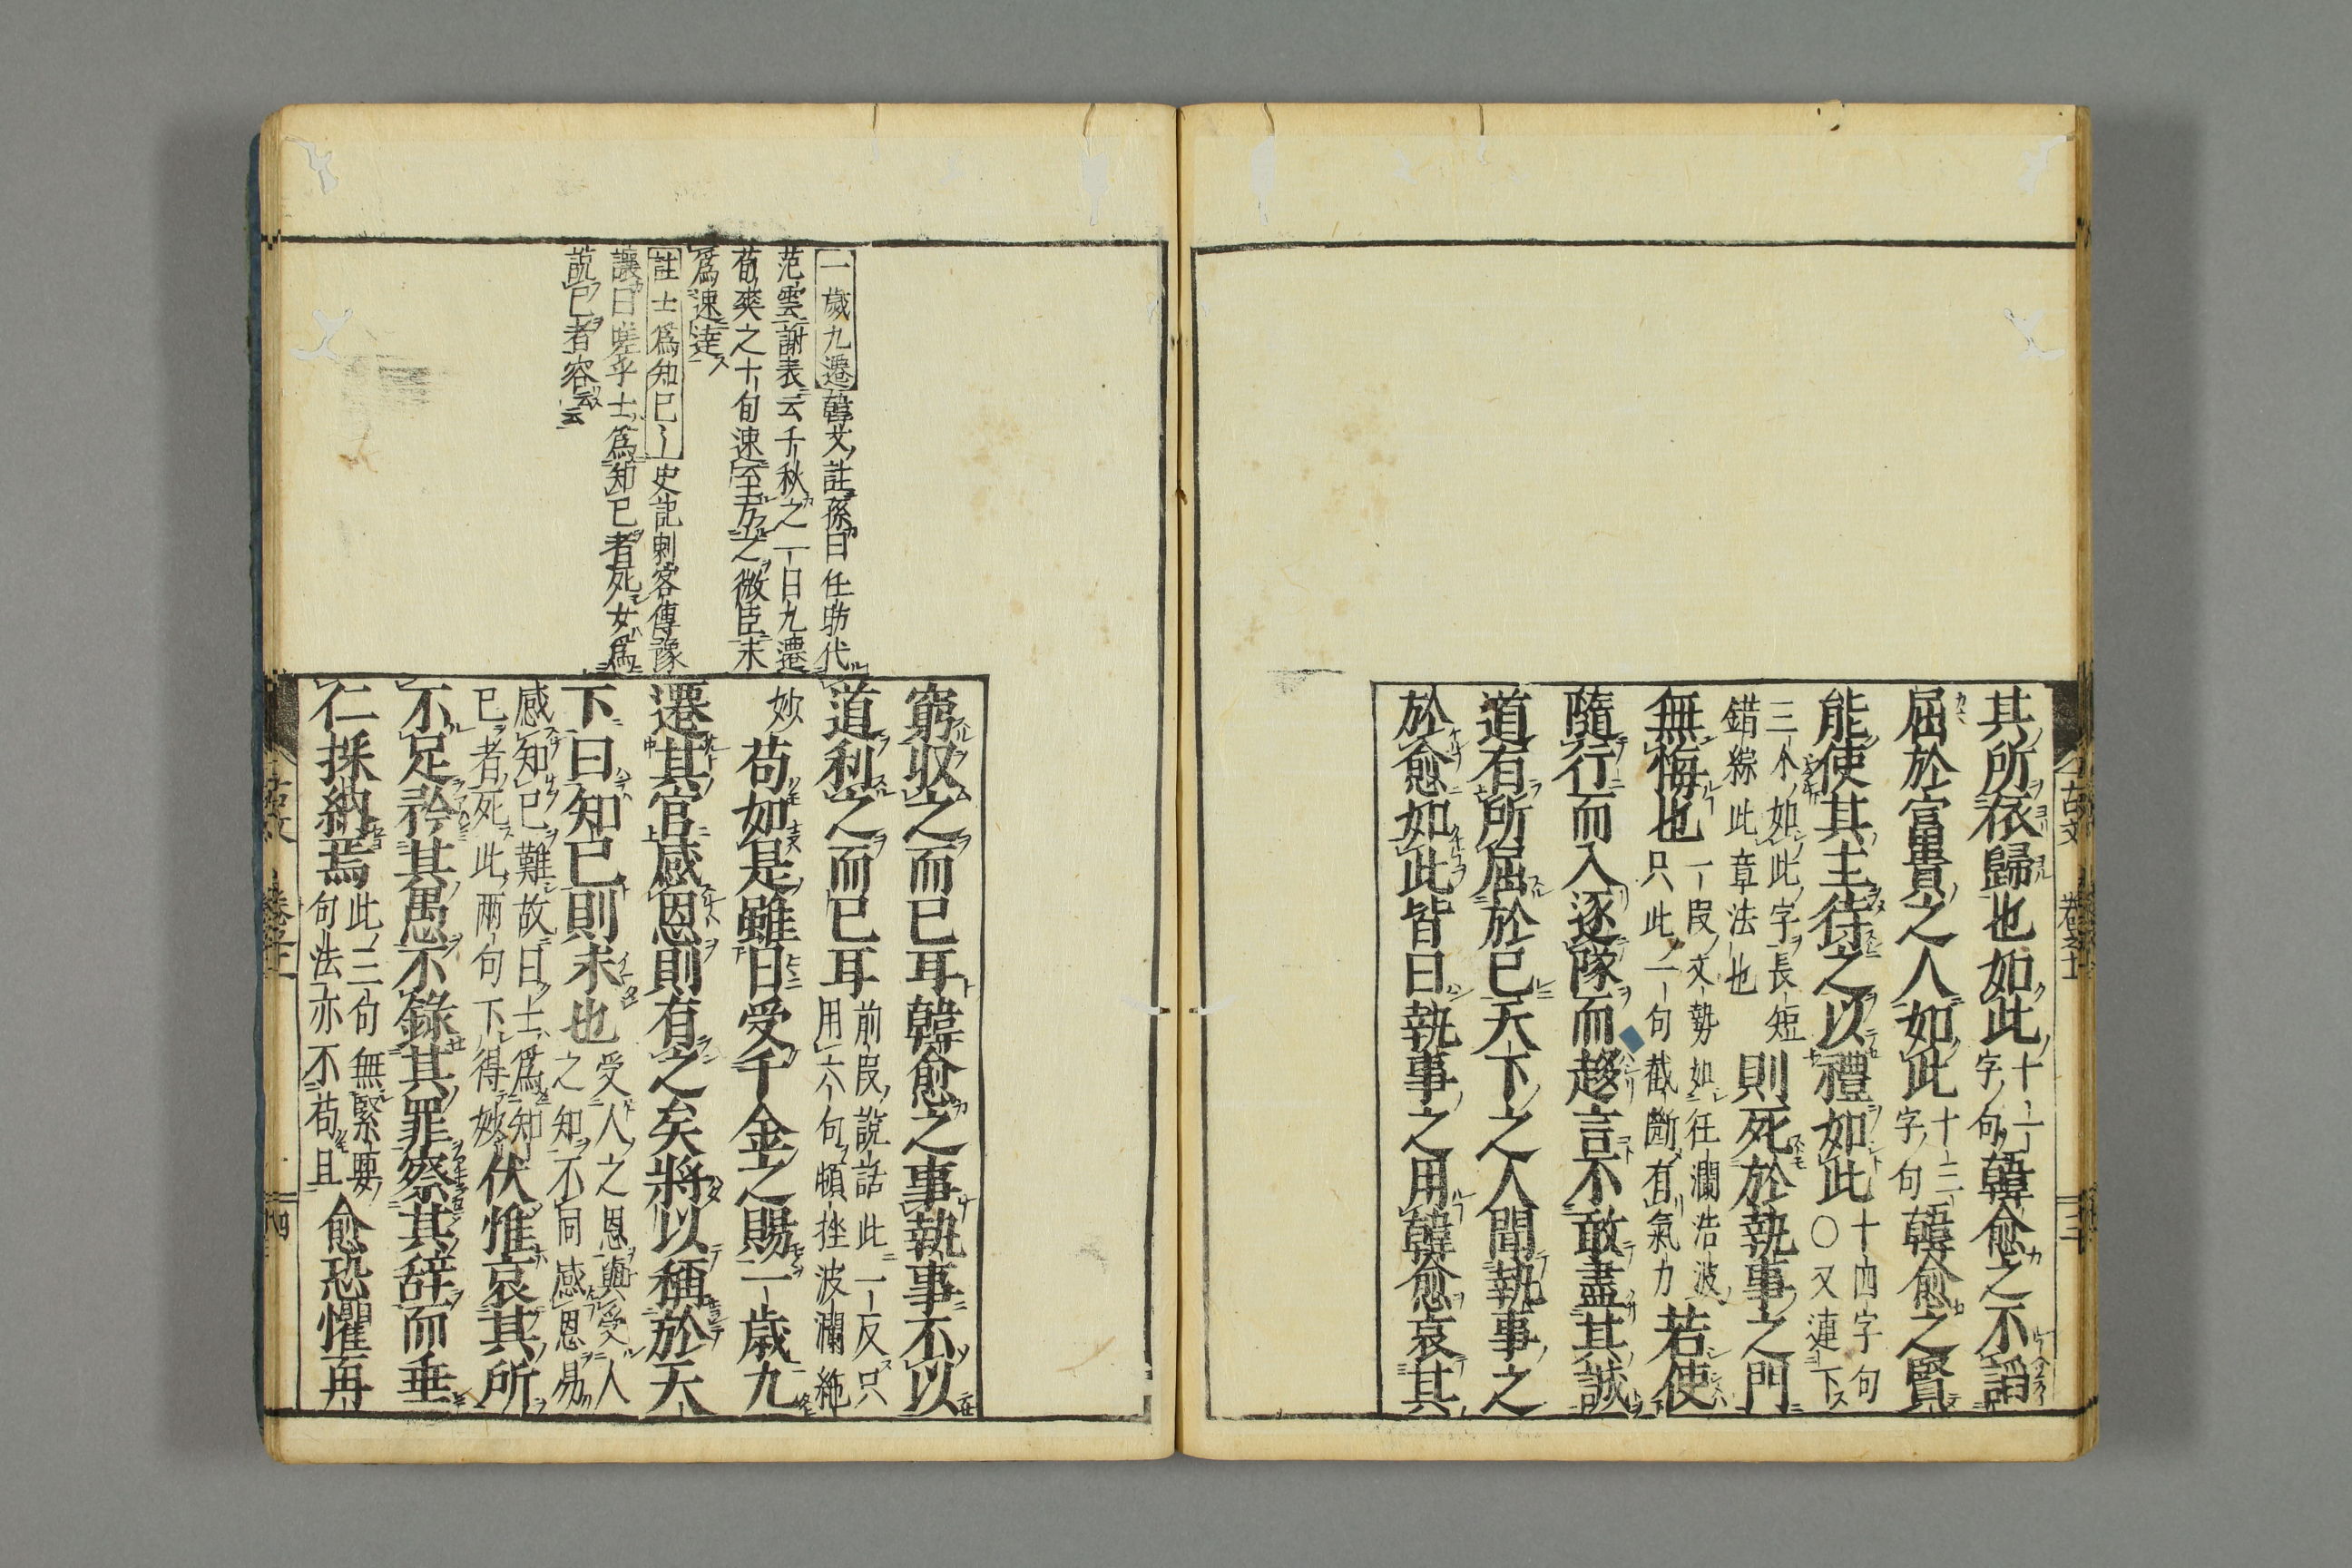 其所依歸也如此十一字句韓愈之不諂
屈於富貴之人如此十三字句韓愈之賢
能使其主待之以禮如此十四字句〇又連下
三个如此字長短錯綜此章法也則死於執事之門
無悔也一段文勢如狂瀾浩波只此一句截斷有氣力若使
隨行而入逐隊而趨言不敢盡其誠
道有所屈於已天下之人聞執事之
於愈如此皆曰執事之用韓愈哀其
古文
三
一歲九遷韓文註孫曰任昉代
范雲謝表云千秋之一日九遷
荀爽之十旬速至方之微臣未
爲速達
註士爲知已〻史記刺客傳豫
讓曰嗟乎士爲知已者死女爲
說已者容云云
窮収之而已耳韓愈之事執事不以
道利之而已耳前段說話此一反只用六个句頓挫波瀾絶
妙苟如是雖日受千金之賜一歳九
遷其官感恩則有之矣將以稱於天
下曰知已則未也受人之恩與受人之知不同感恩易
感知已難故曰士爲知已者死此兩句下得妙伏惟哀其所
不足矜其愚不錄其罪察其辞而垂
仁採納焉此三句無緊要句法亦不苟且愈恐懼再
四